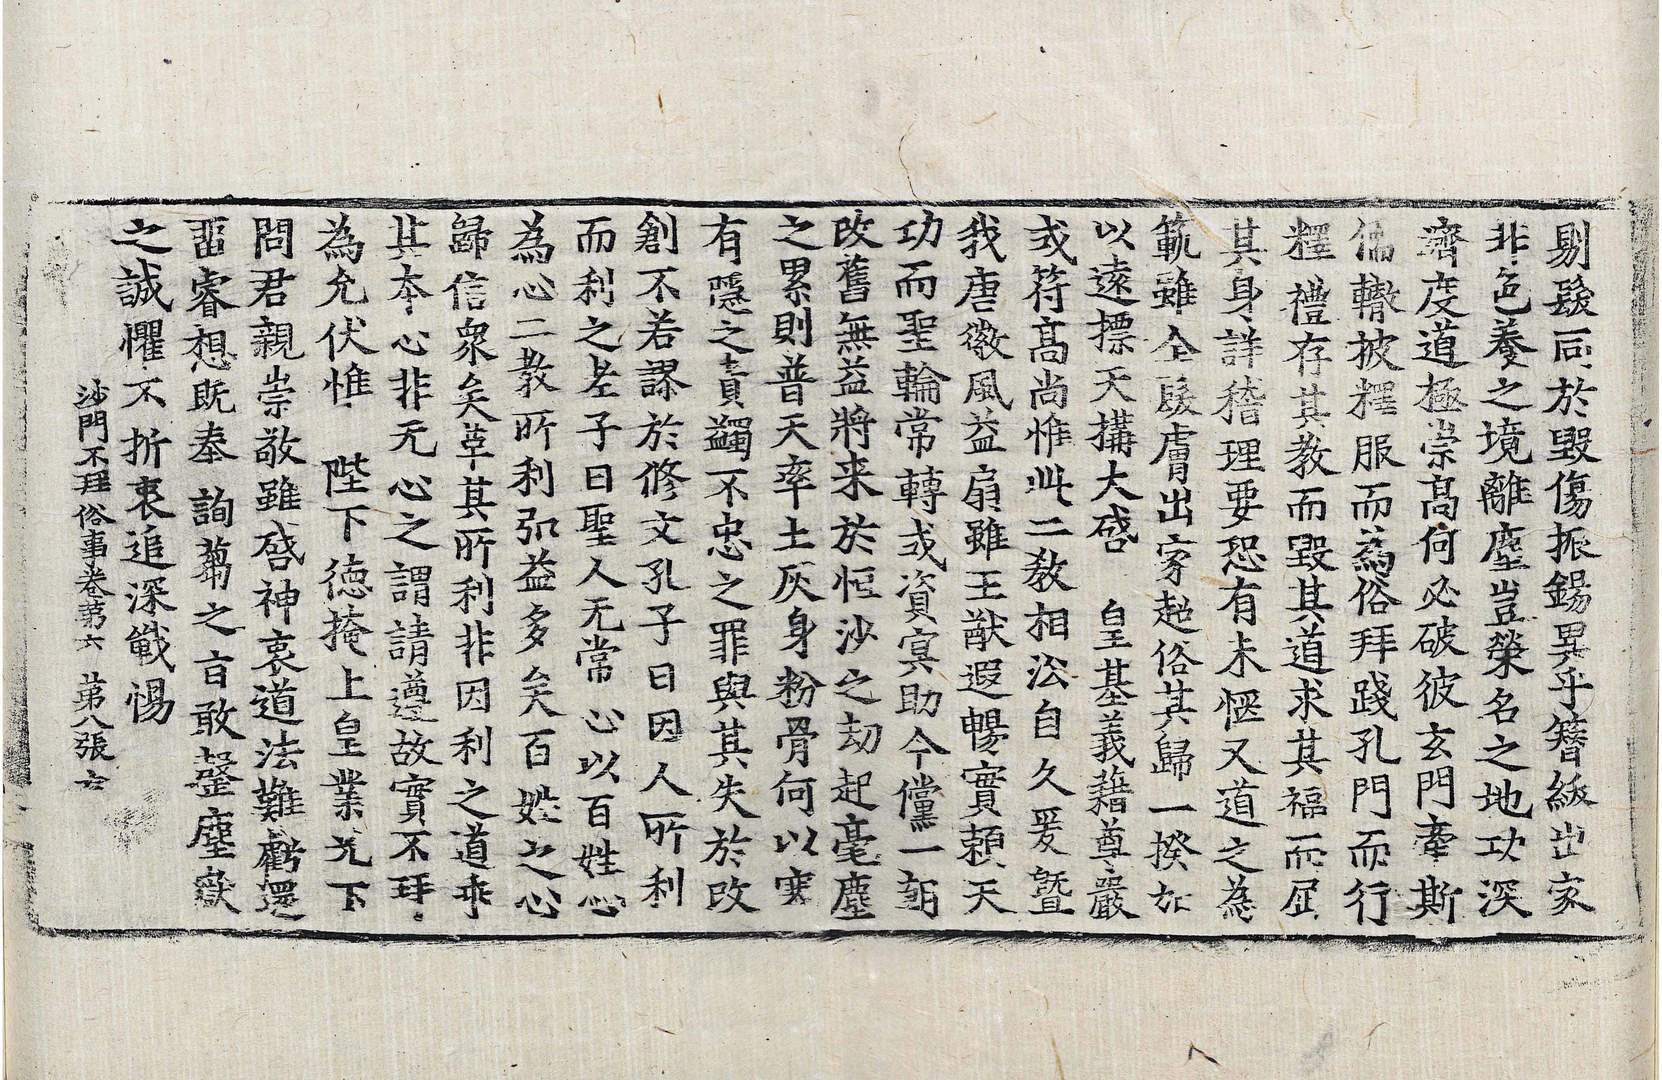 剔髮同於毀傷振錫異乎簪紱出家
非色養之境離塵豈榮名之地功深
濟度道極崇高何必破彼玄門牽斯
儒轍披釋服而為俗拜踐孔門而行
釋禮存其教而毀其道求其福而屈
其身詳稽理要恐有未愜又道之為
範雖全髮膚出家超俗其歸一揆加
以遠摽天構大啓 皇基義藉尊嚴
或符高尚惟此二教相沿自久爰曁
我唐徽風益扇雖王猷遐暢實賴天
功而聖輪常轉或資冥助今儻一朝
改舊無益將来於恒沙之劫起毫塵
之累則普天率土灰身粉骨何以塞
有隱之責蠲不忠之罪與其失於改
創不若謬於修文孔子曰因人所利
而利之老子曰聖人无常心以百姓心
為心二教所利弘益多矣百姓之心
歸信衆矣革其所利非因利之道乖
其本心非无心之謂請遵故實不拜
為允伏惟 陛下德掩上皇業光下
問君親崇敬雖啓神衷道法難虧還
留睿想既奉 詢蒭之旨敢罄塵嶽
之誠懼不折衷追深戰惕
沙門不拜俗事卷苐六 苐八張 右